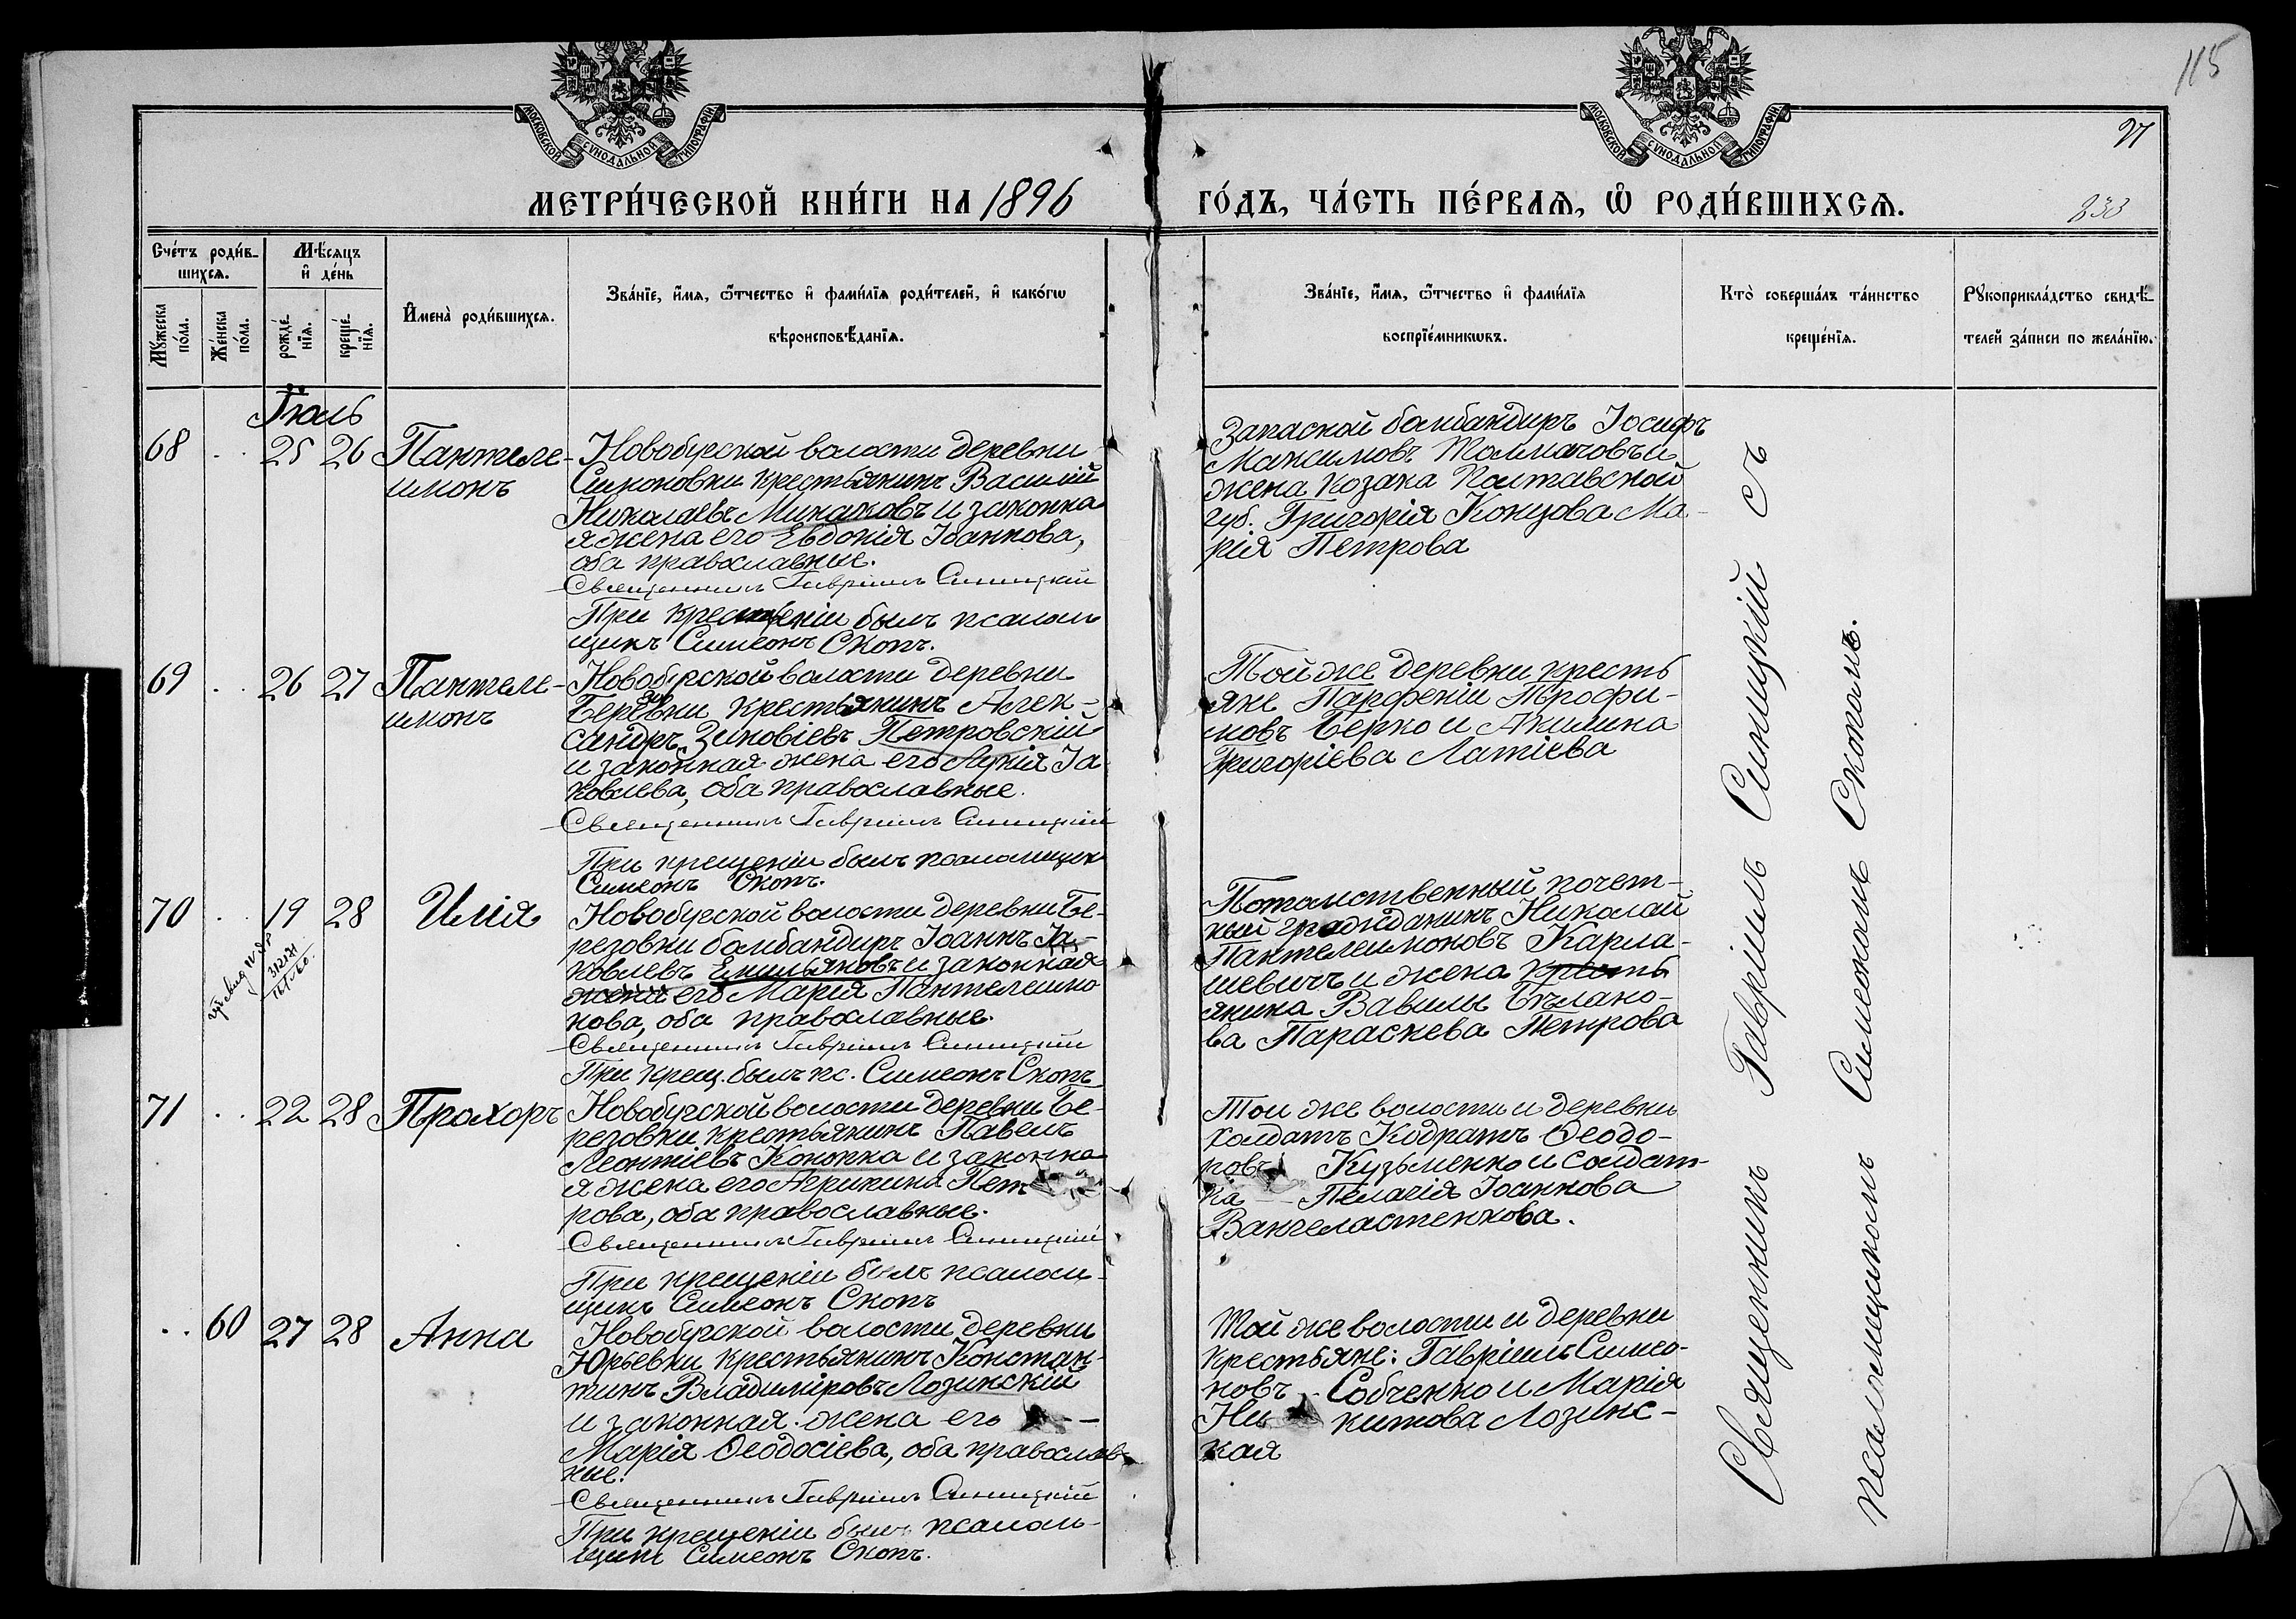 115
МОСКОВСКОЙ СѴНОДАЛЬНОЙ ТИПОГРАФІИ
МОСКОВСКОЙ СѴНОДАЛЬНОЙ ТИПОГРАФІИ
27
МЕТРИ́ЧЕСКОЙ КНИ́ГИ НА 1896 ГО́ДЪ, ЧА́СТЬ ПЕ́РВАЯ, Ѡ҆ РОДИ́ВШИХСЯ.
233
Сче́тъ роди́в-
шихся.
Мѣ́сяцъ
и҆ де́нь
Мꙋ́жеска по́ла.
Же́нска по́ла.
рожде́нїя.
креще́нїя.
И҆мена̀ роди́вшихся.
Зва́нїе, и҆́мя, ѻ҆́тчество и҆ фами́лїя роди́телей, и҆ како́гѡ
вѣроисповѣ́данїя.
Зва́нїе, и҆́мя, ѻ҆́тчество и҆ фами́лїя
воспрїе́мникѡвъ.
Кто̀ соверша́лъ та́инство
креще́нїя.
Рꙋкоприкла́дство свидѣ́-
телей за́писи по жела́нїю.
Іюль
68 .. 25 26 Пантеле-
имонъ
Новобугской волости деревни
Симоновки крестьянинъ Василій
Николаевъ Минаковъ и законна
я жена его Евдокія Іоаннова,
оба православные.
Священникъ Гавріилъ Синицкій
При крещеніи былъ псалом
щикъ Симеонъ Скопъ.
Запасной бомбандиръ Іосифъ
Максимовъ Толмачовъ и
жена козака Полтавской
губ. Григорія Концова Ма-
рія Петрова
69 .. 26 27 Пантеле-
имонъ
Новобугской волости деревни
Березовки крестьянинъ Алек-
сандръ Зиновіевъ Петровскій
и законная жена его Лукія Іа
ковлева, оба православные.
Священникъ Гавріилъ Синицкій
При крещеніи былъ псаломщик
Симеонъ Скопъ.
Той же деревни кресть
яне Парфеній Трофи-
мовъ Берко и Акилина
Григоріева Латіева
70 .. 19 28 Илія
312171
Новобугской волости деревни Бе-
резовки бомбандиръ Іоаннъ Іа-
ковлевъ Емильяновъ и законная
жена его Марія Пантелеимо
нова, оба православные.
Священникъ Гавріилъ Синицкій
При крещ. былъ пс. Симеонъ Скопъ
Потомственный почет-
ный гражданинъ Николай
Пантелеимоновъ Карла-
шевичъ и жена кресть
янина Вавилы Бѣлано-
ва Параскева Петрова
71 .. 22 28 Прохоръ
Новобугской волости деревни Бе-
резовки крестьянинъ Павелъ
Леонтіевъ Конопка и законна
я жена его Агрипина Пет
рова, оба православные.
Священникъ Гавріилъ Синицкій
При крещеніи былъ псалом-
щикъ Симеонъ Скопъ
Той же волости и деревни
солдатъ Кодратъ Ѳеодо-
ровъ Кузьменко и солдат-
ка Пелагія Іоаннова
Вангеластенкова.
.. 60 27 28 Анна
Новобугской волости деревни
Юрьевки крестьянинъ Констан-
тинъ Владиміровъ Лозинскій
и законная жена его
Марія Ѳеодосіева, оба православ-
ные.
Священникъ Гавріилъ Синицкій
При крещеніи былъ псалом-
щикъ Симеонъ Скопъ.
Той же волости и деревни
крестьяне: Гавріилъ Симео-
новъ Собченко и Марія
Ни китова Лозинс-
кая
Священникъ Гавріилъ Синицкій съ
псаломщикомъ Симеономъ Скопомъ.